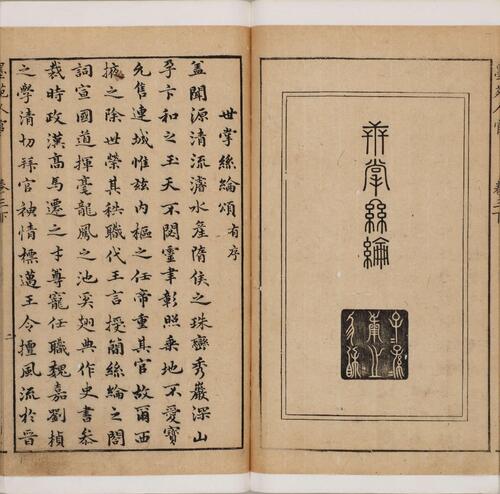 世掌絲綸
世掌絲綸頌有序
蓋聞源清流濬水産隋侯之珠巒秀巖深山
孕卞和之玉天不閟靈聿彰照乘地不愛寶
允售連城惟玆内樞之任帝重其官故爾西
掖之除世榮其秩職代王言授簡絲綸之閣
詞宣國道揮毫龍鳳之池奚翅典作史書叅
裁時政漢高馬遷之才尊寵任職魏嘉劉楨
之學清切拜官神情標邁王令擅風流於晉
墨苑人官 卷三下 二